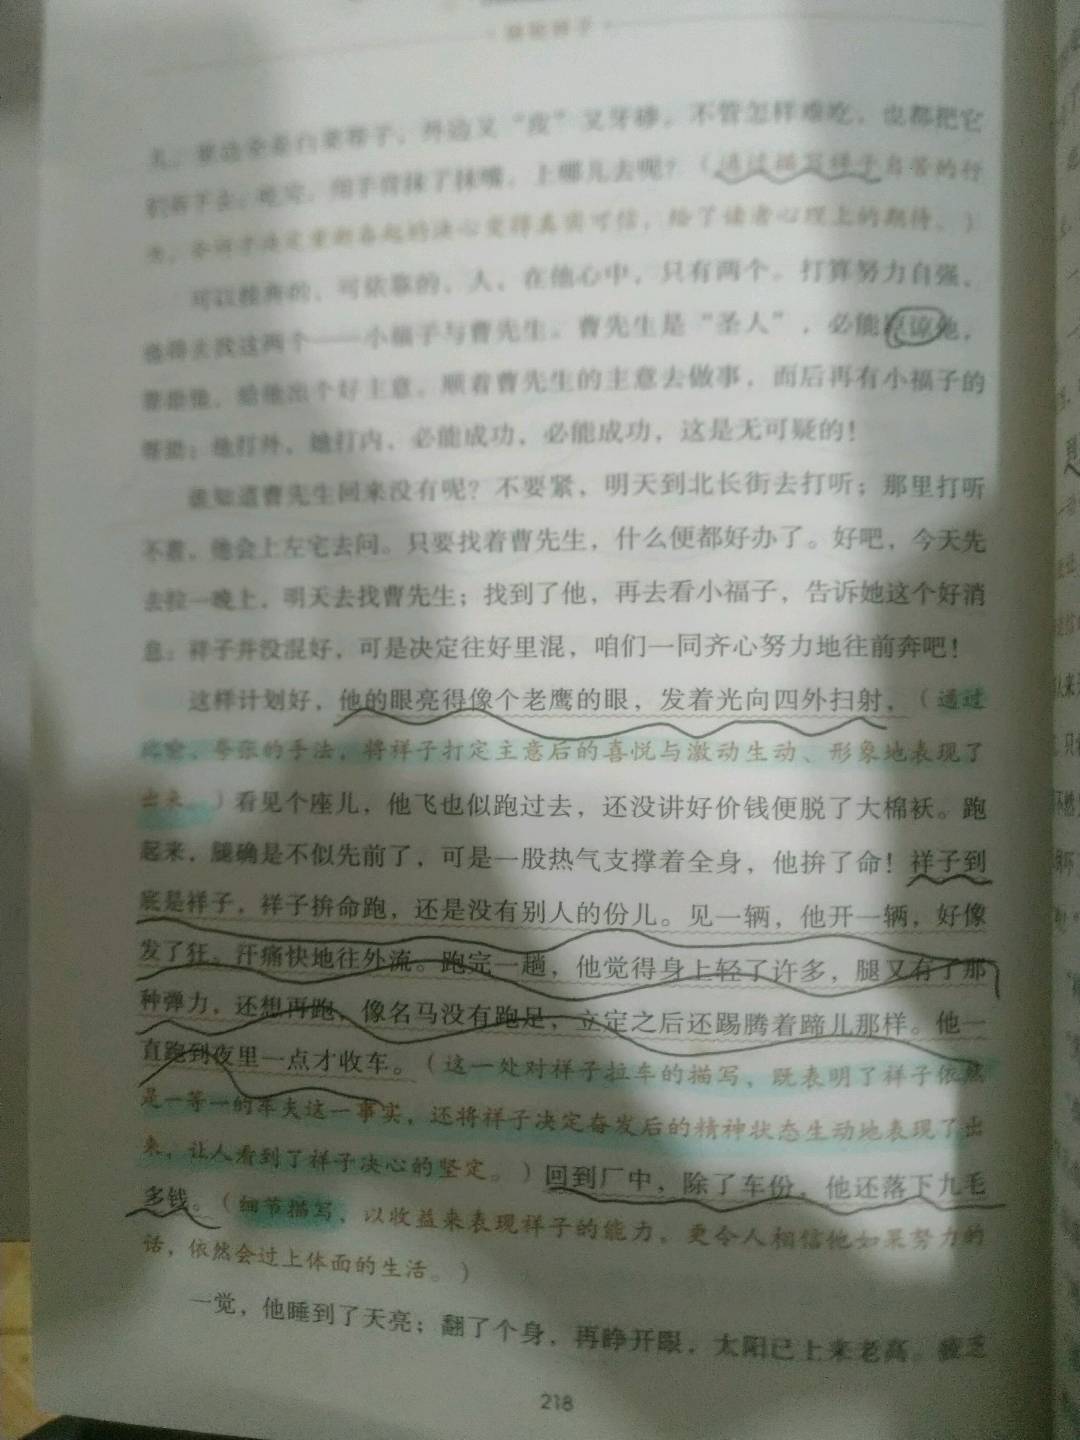 骆驼祥子
儿，里边全是白菜帮子，外边又“皮”又牙碜。不管怎样难吃，也都把它
们吞下去。吃完，用手背抹了抹嘴。上哪儿去呢？（通过描写祥子自苦的行
为，令祥子决定重新奋起的决心变得真实可信，给了读者心理上的期待。）
可以投奔的，可依靠的，人，在他心中，只有两个。打算努力自强，
他得去找这两个——小福子与曹先生。曹先生是“圣人”，必能原谅他，
帮助他，给他出个好主意。顺着曹先生的主意去做事，而后再有小福子的
帮助；他打外，她打内，必能成功，必能成功，这是无可疑的！
谁知道曹先生回来没有呢？不要紧，明天到北长街去打听；那里打听
不着，他会上左宅去问。只要找着曹先生，什么便都好办了。好吧，今天先
去拉一晚上，明天去找曹先生；找到了他，再去看小福子，告诉她这个好消
息：祥子并没混好，可是决定往好里混，咱们一同齐心努力地往前奔吧！
这样计划好，他的眼亮得像个老鹰的眼，发着光向四外扫射，（通过
比喻、夸张的手法，将祥子打定主意后的喜悦与激动生动、形象地表现了
出来。）看见个座儿，他飞也似跑过去，还没讲好价钱便脱了大棉袄。跑
起来，腿确是不似先前了，可是一股热气支撑着全身，他拚了命！祥子到
底是祥子，祥子拚命跑，还是没有别人的份儿。见一辆，他开一辆，好像
发了狂。汗痛快地往外流。跑完一趟，他觉得身上轻了许多，腿又有了那
种弹力，还想再跑，像名马没有跑足，立定之后还踢腾着蹄儿那样。他一
直跑到夜里一点才收车。（这一处对祥子拉车的描写，既表明了祥子依然
是一等一的车夫这一事实，还将祥子决定奋发后的精神状态生动地表现了出
来，让人看到了祥子决心的坚定。）回到厂中，除了车份，他还落下九毛
多钱。（细节描写，以收益来表现祥子的能力，更令人相信他如果努力的
话，依然会过上体面的生活。）
一觉，他睡到了天亮；翻了个身，再睁开眼，太阳已上来老高。疲乏
218